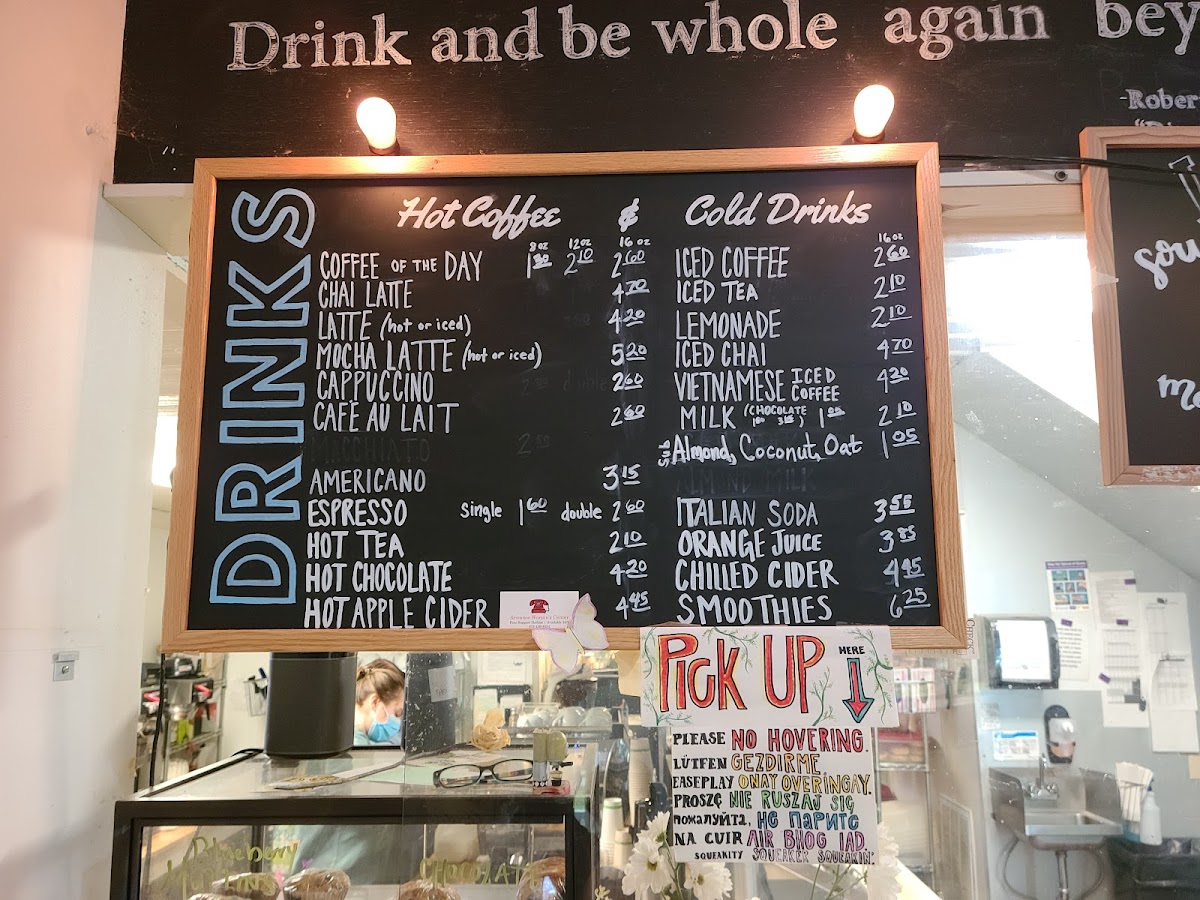 Drink and be whole again bey
-Rober
DRINKS
Hot Coffee & Cold Drinks
8 oz 12 oz 16 oz
COFFEE OF THE DAY 1 80 2 10 2 60
CHAI LATTE 4 70
LATTE (hot or iced) 4 20
MOCHA LATTE (hot or iced) 5 20
CAPPUCCINO 2 60
CAFÉ AU LAIT 2 60
MACCHIATO
AMERICANO 3 15
ESPRESSO Single 1 60 double 2 60
HOT TEA 2 10
HOT CHOCOLATE 4 20
HOT APPLE CIDER 4 45
16 oz
ICED COFFEE 2 60
ICED TEA 2 10
LEMONADE 2 10
ICED CHAI 4 70
VIETNAMESE ICED COFFEE 4 20
MILK (CHOCOLATE) 2 10
Sub Almond, Coconut, Oat 1 05
ALMOND MILK
ITALIAN SODA 3 55
ORANGE JUICE 3 85
CHILLED CIDER 4 45
SMOOTHIES 6 25
PICK UP HERE
PLEASE NO HOVERING.
LÜTFEN GEZDIRME.
EASEPLAY ONAY OVERINGAY.
PROSZĘ NIE RUSZAJ SIĘ
пожалуйста, не парите
NA CUIR AIR BHOG IAD.
SQUEAKITY SQUEAKER SQUEAKIN'.